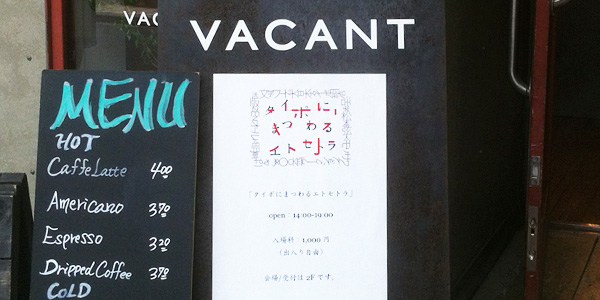 VAC
VACANT
MENU
HOT
Caffe Latte 400
Americano 370
Espresso 320
Dripped Coffee 370
COLD
タイポに
まつわる
エトセトラ
「タイポにまつわるエトセトラ」
open : 14:00-19:00
入場料 : 1,000円
(出入り自由)
会場/受付は2Fです。